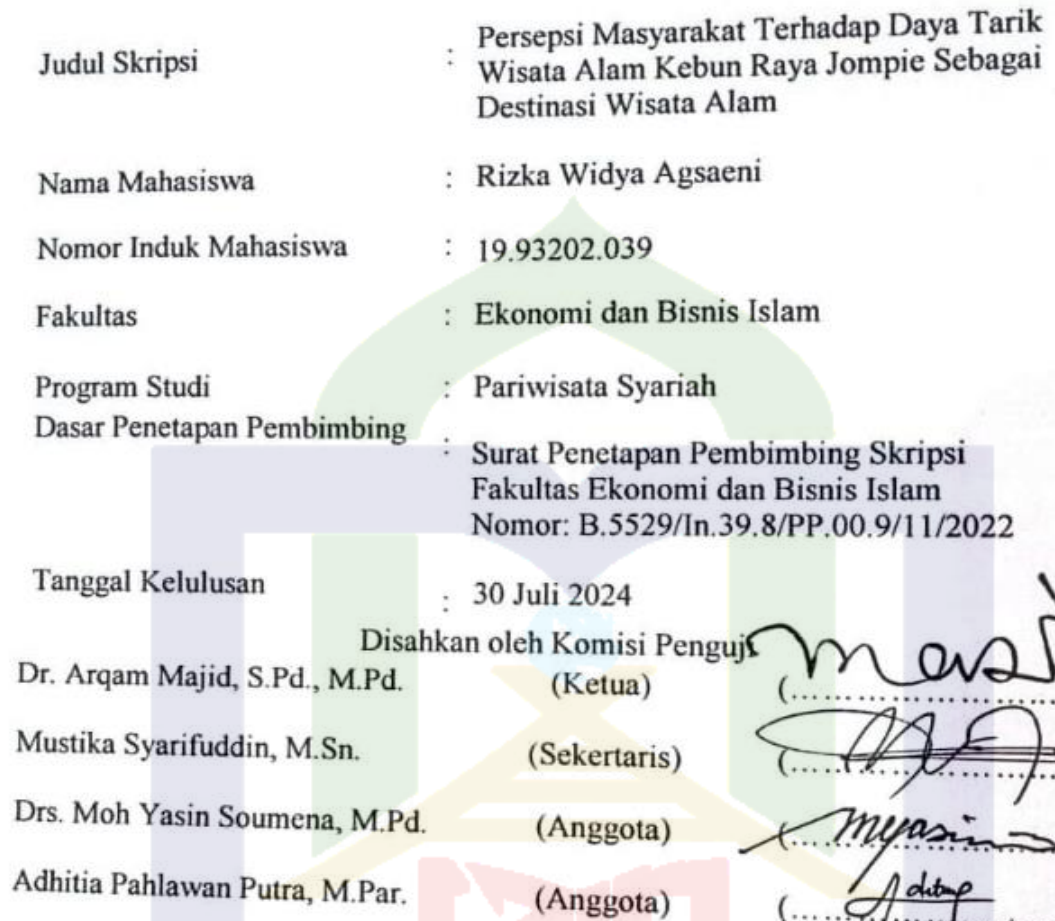 Judul Skripsi : Persepsi Masyarakat Terhadap Daya Tarik
Wisata Alam Kebun Raya Jompie Sebagai
Destinasi Wisata Alam
Nama Mahasiswa : Rizka Widya Agsaeni
Nomor Induk Mahasiswa : 19.93202.039
Fakultas : Ekonomi dan Bisnis Islam
Program Studi : Pariwisata Syariah
Dasar Penetapan Pembimbing : Surat Penetapan Pembimbing Skripsi
Fakultas Ekonomi dan Bisnis Islam
Nomor: B.5529/In.39.8/PP.00.9/11/2022
Tanggal Kelulusan : 30 Juli 2024
Disahkan oleh Komisi Penguji
Dr. Arqam Majid, S.Pd., M.Pd. (Ketua) (....................
Mustika Syarifuddin, M.Sn. (Sekertaris) (....................
Drs. Moh Yasin Soumena, M.Pd. (Anggota) (....................
Adhitia Pahlawan Putra, M.Par. (Anggota) (....................